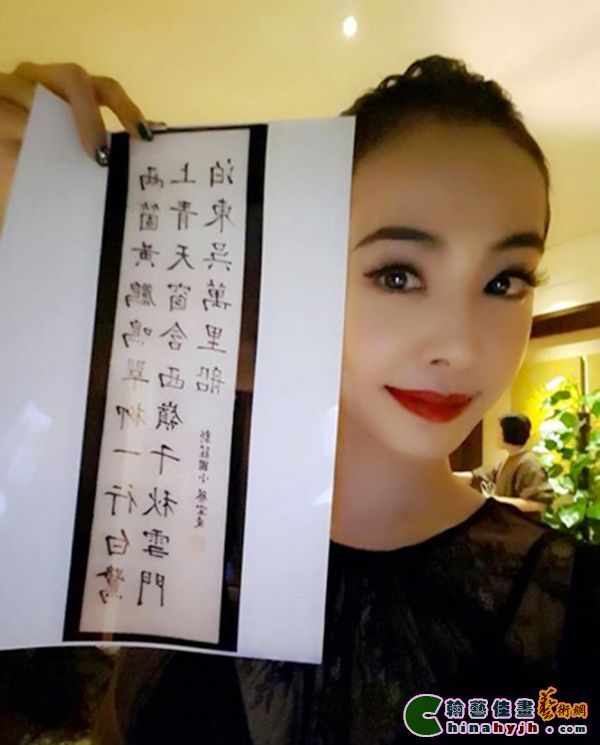 兩箇黃鸝鳴翠柳一行白鷺
上青天窗含西嶺千秋雪門
泊東吳萬里船
新莊國小 蔡宜凌
翰藝佳畫藝術網
Chinahyjh.com